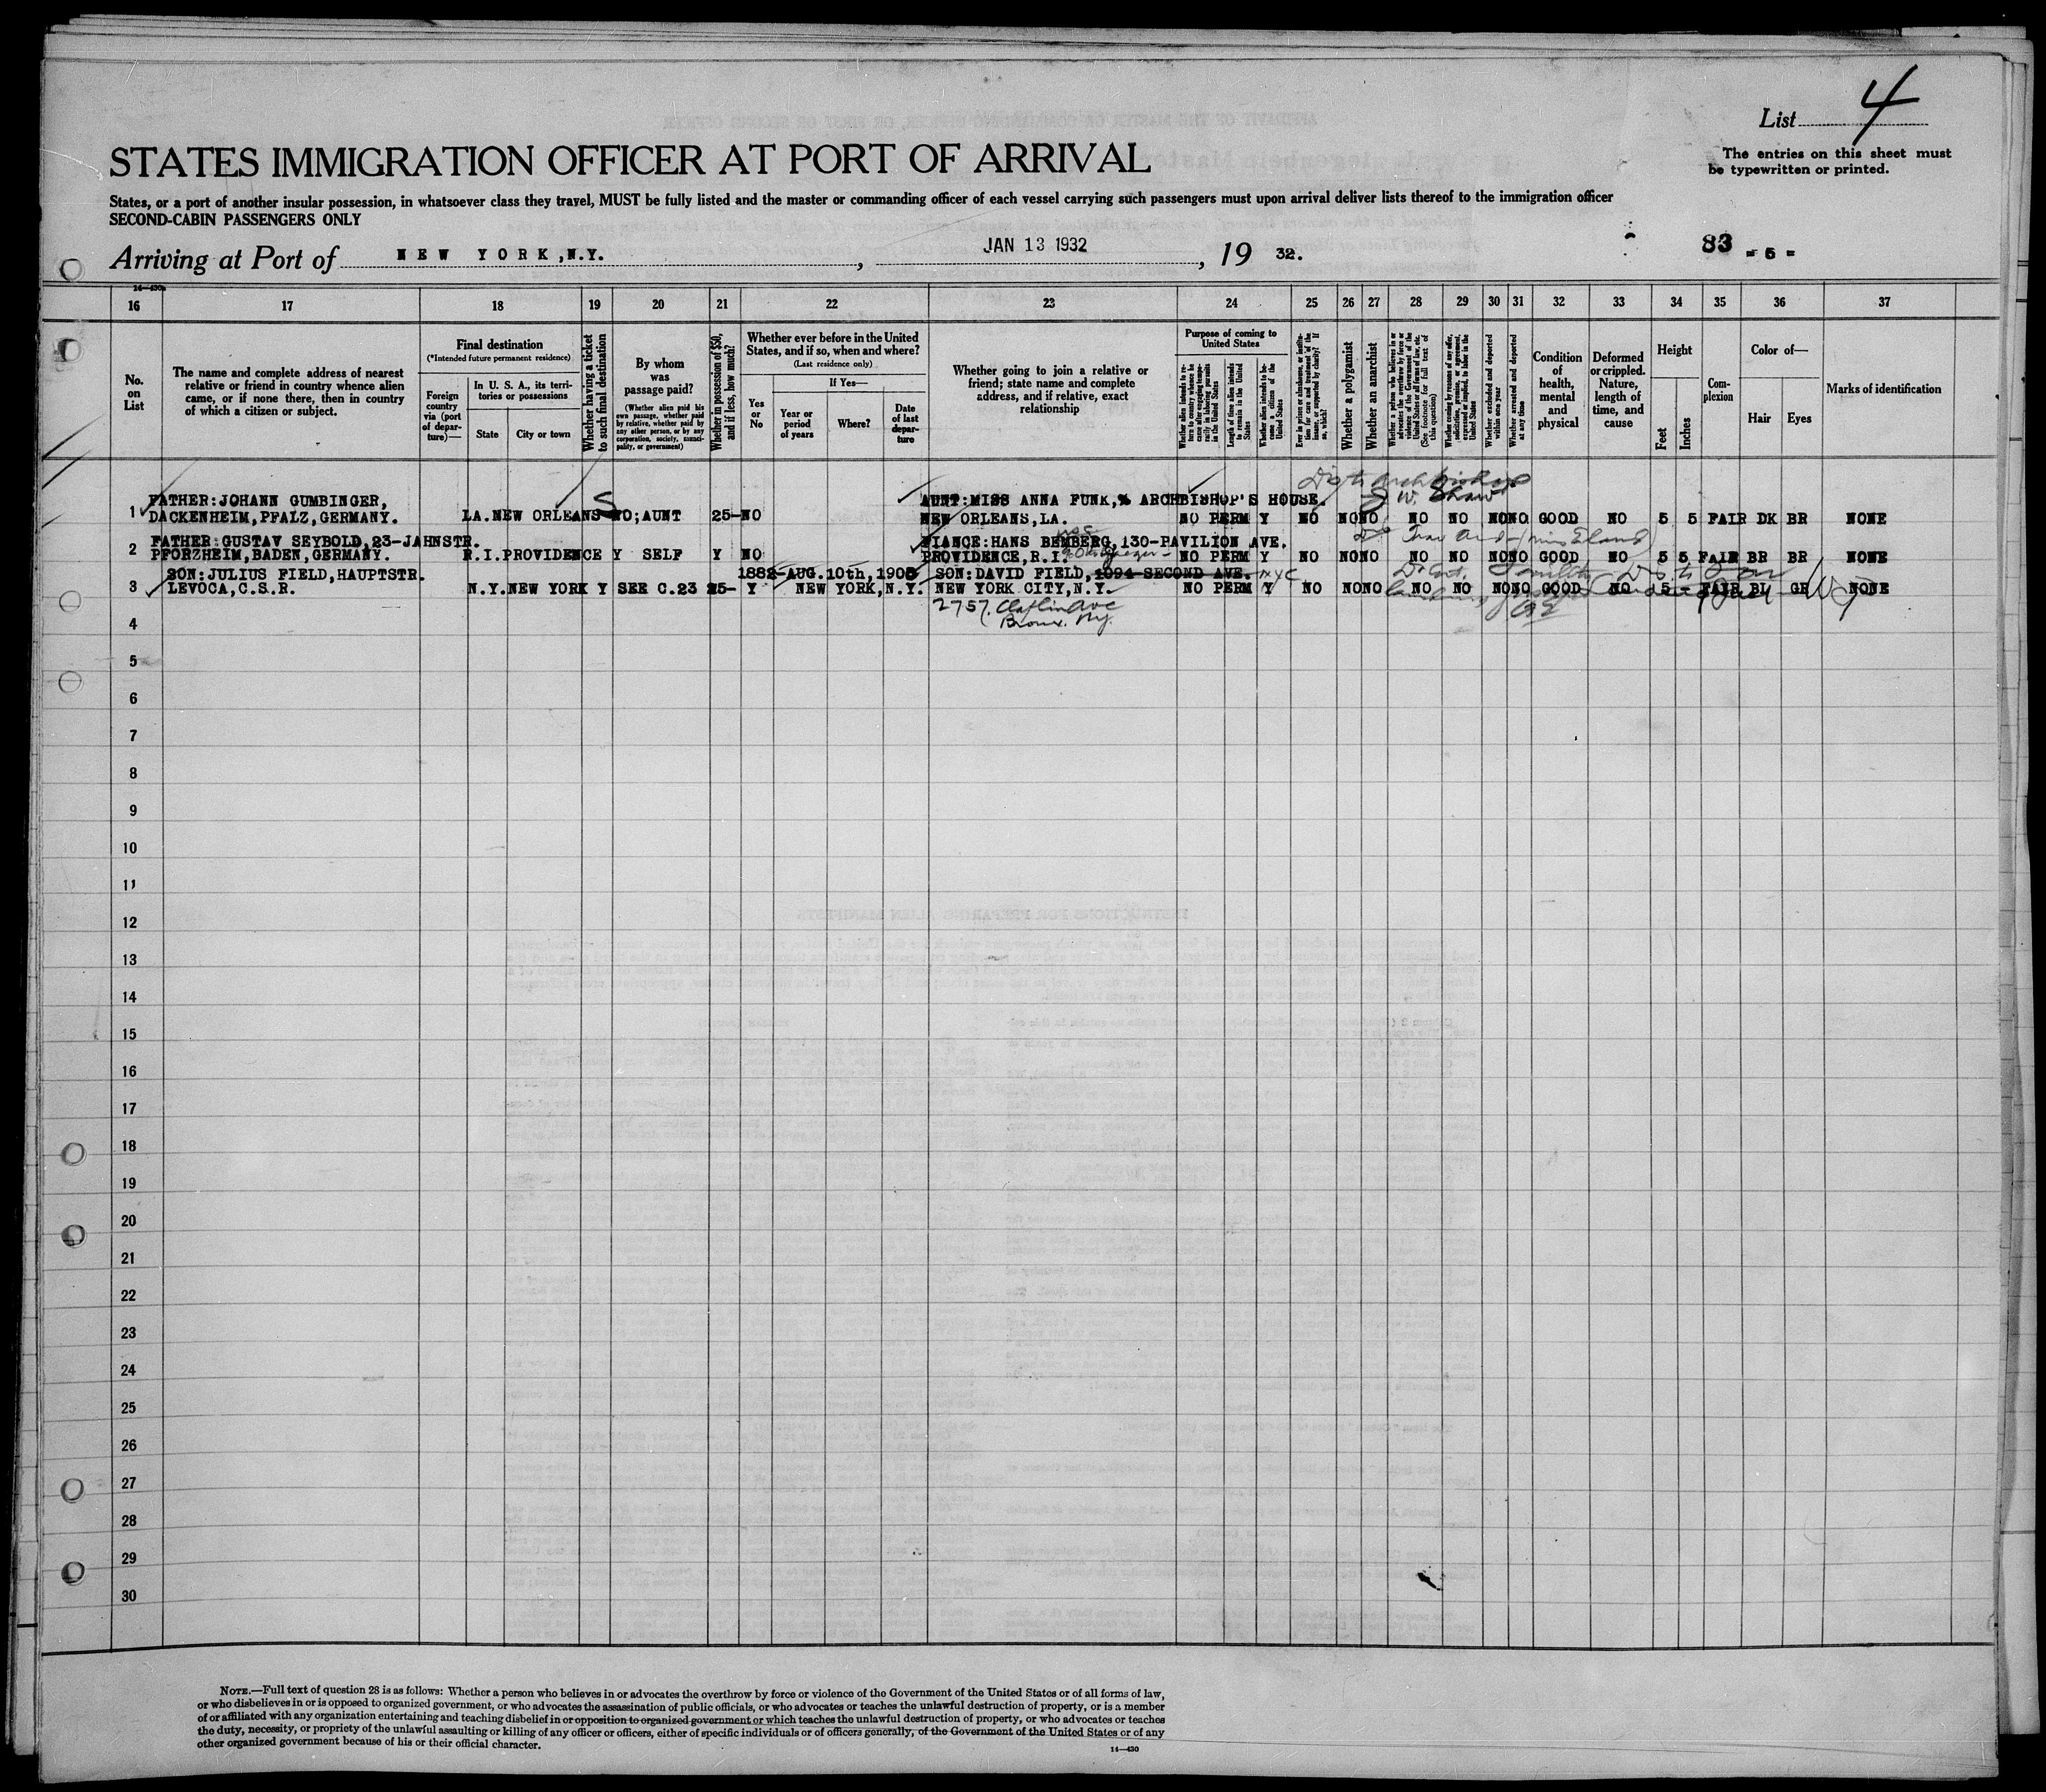 List 4
The entries on this sheet must
be typewritten or printed.
STATES IMMIGRATION OFFICER AT PORT OF ARRIVAL
States, or a port of another insular possession, in whatsoever class they travel, MUST be fully listed and the master or commanding officer of each vessel carrying such passengers must upon arrival deliver lists thereof to the immigration officer
SECOND-CABIN PASSENGERS ONLY
Arriving at Port of NEW YORK,N.Y., JAN 13 1932, 19 32.
83 - 5 -
14—430
16 17 18 19 20 21 22 23 24 25 26 27 28 29 30 31 32 33 34 35 36 37
No. on List
The name and complete address of nearest
relative or friend in country whence alien
came, or if none there, then in country
of which a citizen or subject.
Final destination
(*Intended future permanent residence)
Foreign country via (port of departure)—
In U. S. A., its territories or possessions
State
City or town
Whether having a ticket to such final destination
By whom was passage paid?
(Whether alien paid his own passage, whether paid by relative, whether paid by any other person, or by any corporation, society, municipality, or government)
Whether in possession of $50, and if less, how much?
Whether ever before in the United
States, and if so, when and where?
(Last residence only)
Yes or No
If Yes—
Year or period of years
Where?
Date of last departure
Whether going to join a relative or
friend; state name and complete
address, and if relative, exact
relationship
Purpose of coming to
United States
Length of time alien intends to remain in the United States
Whether alien intends to become a citizen of the United States
Whether a polygamist
Whether an anarchist
(See footnote for full text of this question)
Whether excluded and deported within one year
Whether arrested and deported at any time
Condition of health, mental and physical
Deformed or crippled. Nature, length of time, and cause
Height
Feet
Inches
Complexion
Color of—
Hair
Eyes
Marks of identification
FATHER:JOHANN GUMBINGER, AUNT:MISS ANNA FUNK,% ARCHBISHOP'S HOUSE. W. Shaw
1 DACKENHEIM,PFALZ,GERMANY. LA.NEW ORLEANS NO;AUNT 25-NO NEW ORLEANS,LA. NO PERM Y NO NO NO NO NO NO NO GOOD NO 5 5 FAIR DK BR NONE
FATHER:GUSTAV SEYBOLD,23-JAHNSTR. FIANCE:HANS BEMBERG,130-PAVILION AVE.
2 PFORZHEIM,BADEN,GERMANY. R.I.PROVIDENCE Y SELF Y NO PROVIDENCE,R.I. NO PERM Y NO NO NO NO NO NO NO GOOD NO 5 5 FAIR BR BR NONE
SON:JULIUS FIELD,HAUPTSTR. 1882-AUG.10th,1908 SON:DAVID FIELD,1094-SECOND AVE. NYC
3 LEVOCA,C.S.R. N.Y.NEW YORK Y SEE C.23 25- Y NEW YORK,N.Y. NEW YORK CITY,N.Y. NO PERM Y NO NO NO NO NO NO NO GOOD NO 5 - FAIR BL GR NONE
2757. Claflin Ave
Bronx. Ny.
4
5
6
7
8
9
10
11
12
13
14
15
16
17
18
19
20
21
22
23
24
25
26
27
28
29
30
NOTE.—Full text of question 28 is as follows: Whether a person who believes in or advocates the overthrow by force or violence of the Government of the United States or of all forms of law,
or who disbelieves in or is opposed to organized government, or who advocates the assassination of public officials, or who advocates or teaches the unlawful destruction of property, or is a member
of or affiliated with any organization entertaining and teaching disbelief in or opposition to organized government or which teaches the unlawful destruction of property, or who advocates or teaches
the duty, necessity, or propriety of the unlawful assaulting or killing of any officer or officers, either of specific individuals or of officers generally, of the Government of the United States or of any
other organized government because of his or their official character.
14—430